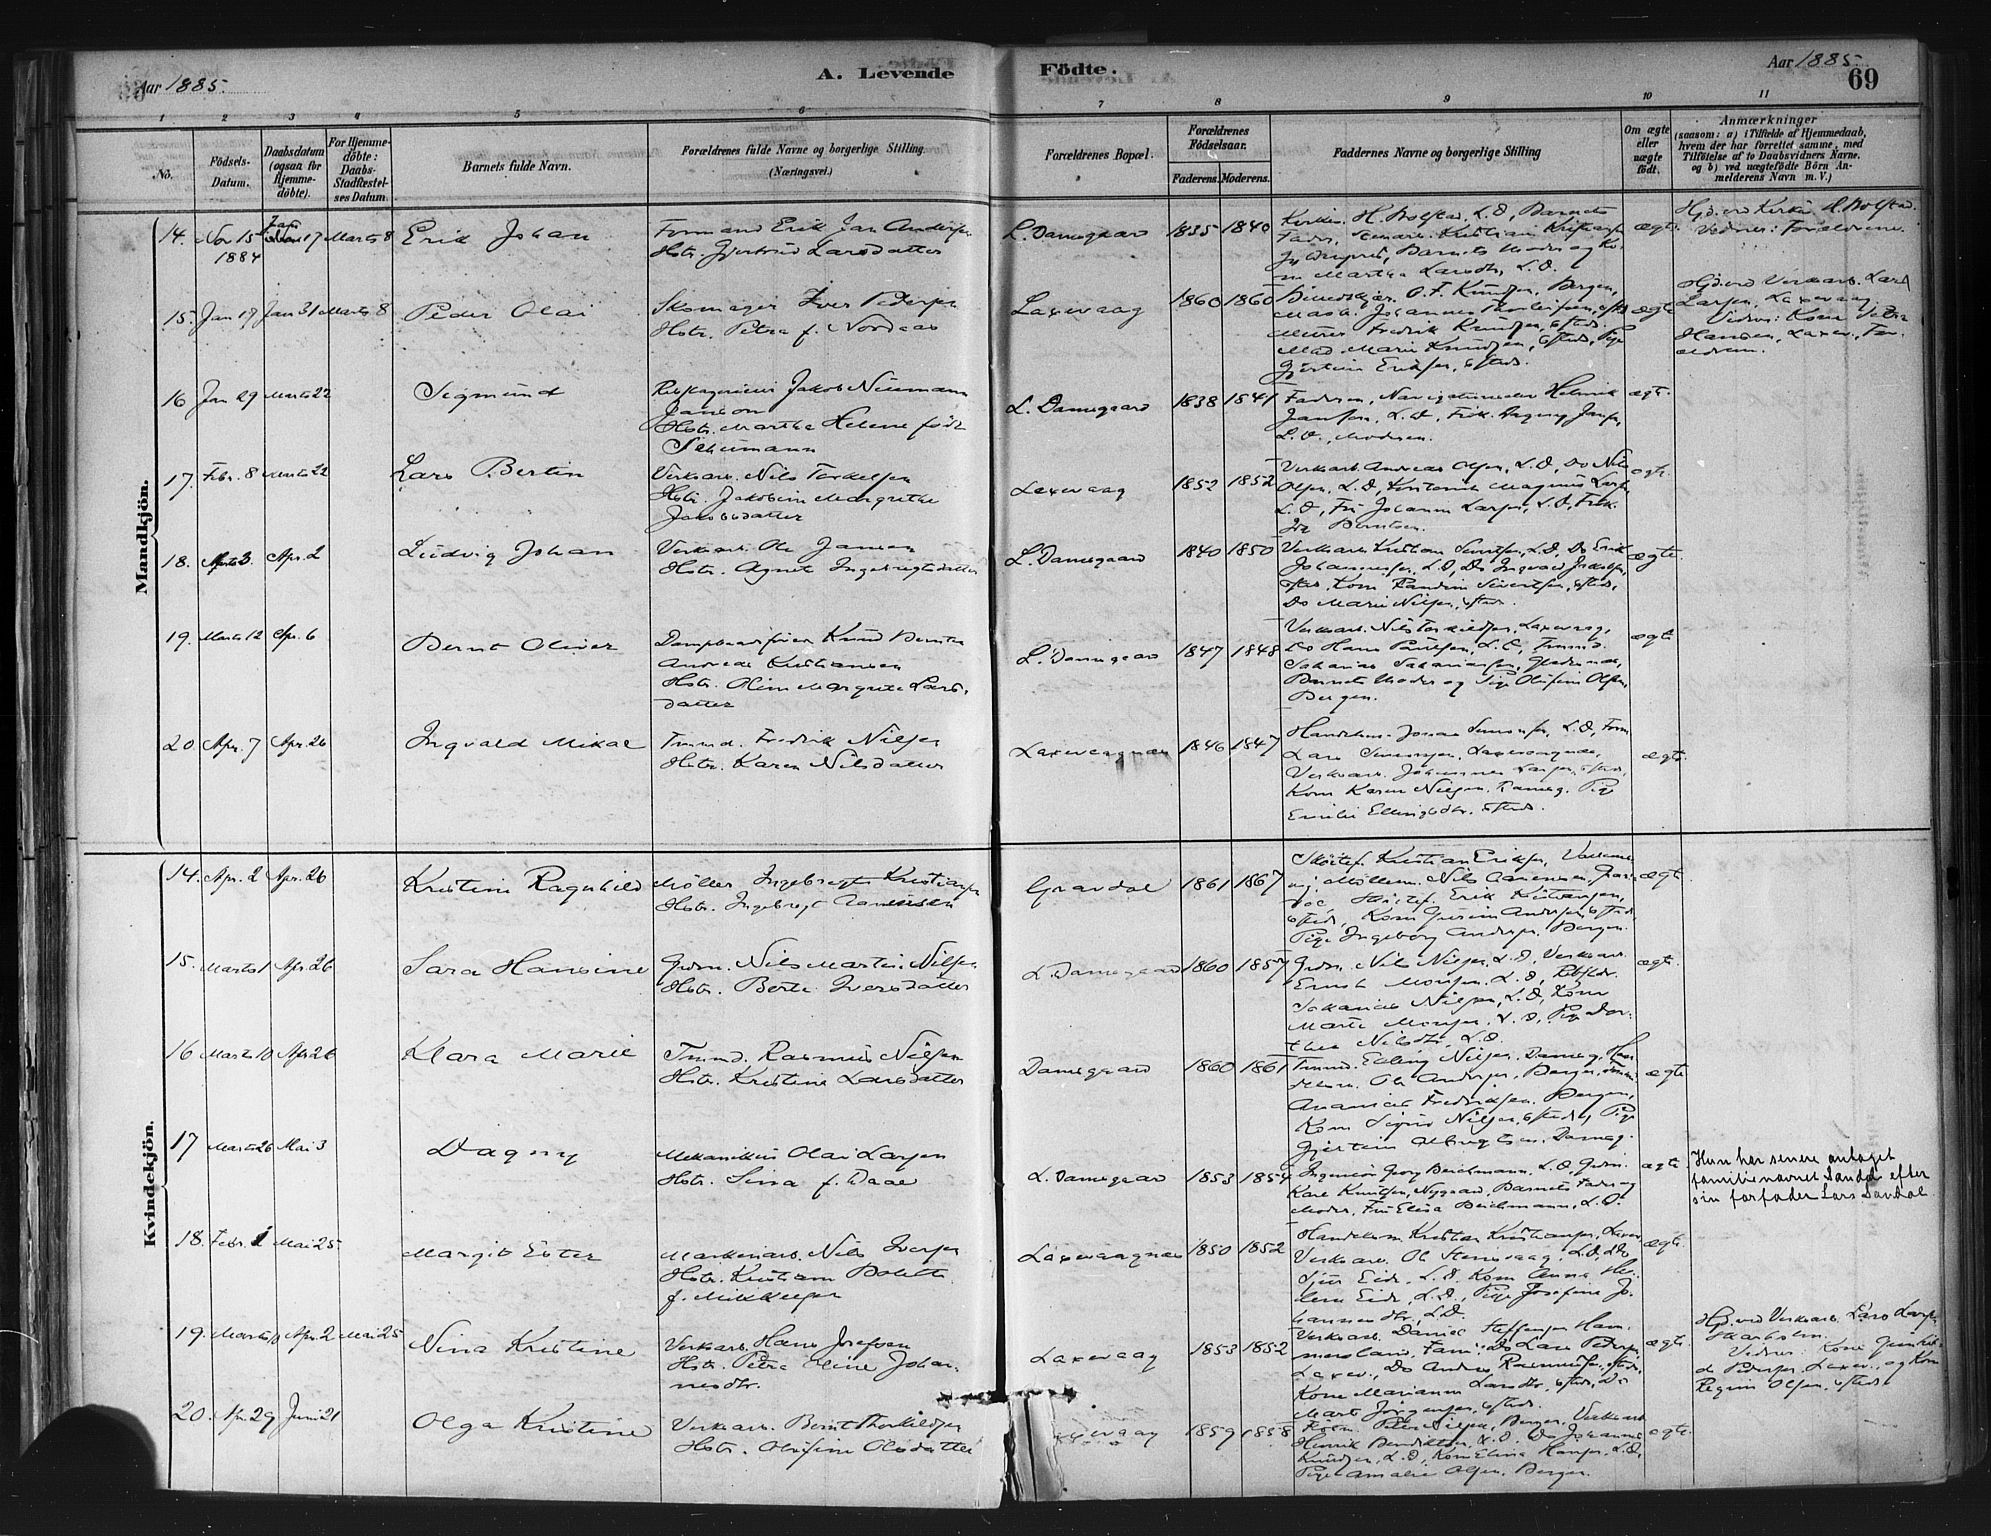 Aar 1885.
A. Levende Födte.
Aar 1885.
69
1 2 3 4 5 6 7 8 9 10 11
No.
Födsels-
Datum.
Daabsdatum
(ogsaa for
Hjemme-
döbte).
For Hjemme-
döbte:
Daabs-
Stadfæstel-
ses Datum.
Barnets fulde Navn.
Forældrenes fulde Navne og borgerlige Stilling.
(Næringsvei.)
Forældrenes Bopæl.
Forældrenes
Födselsaar.
Faderens. Moderens.
Faddernes Navne og borgerlige Stilling
Om ægte
eller
uægte
födt.
Anmærkninger
(saasom: a) i Tilfælde af Hjemmedaab,
hvem der har forrettet samme, med
Tilföielse af to Daabsvidners Navne,
og b) ved uægtefödte Börn An-
melderens Navn m. V.)
Mandkjön.
14. Nov 15 1884 Jan 17 Marts 8 Erik Johan
Formand Erik Jan Anders
Hstr. Gjertrud Larsdatter
L. Damsgaard 1835 1840
Kirkes. H. Bolstad, L.D., Barnets
Fader, Kristian
Barnets Moder og Ko-
ne Martha Larsdtr, L.D.
ægte
Hjd. ved Kirkes. H. Bolstad.
Vidner: Forældrene.
15. Jan 17 Jan 31 Marts 8 Peder Olai
Skomager Iver Pedersen
Hstr. Petra f. Nordaas
Laxevaag 1860 1860
O. F. Knudsen, Bergen,
Johannes
Murer Fredrik Knudsen, sstds.
Mad. Marie Knudsen, sstds, Pige
Gjertine Eriksen, sstds.
ægte
Hjd. ved Verksarb. Lars
Larsen, Laxevaag
Vidner: Kone Petra
Hansen, Laxev., For-
ældrene.
16 Jan 29 Marts 22 Sigmund
Jakob Neumann
Janson
Hstr. Martha Helene født
Schumann
L. Damsgaard 1838 1841
Faderen, Henrik
Jansen, L.D., Frk. Dagny Jansen,
L.D., Moderen.
ægte
17. Febr. 8 Marts 22 Lars Bertin
Verksarb. Nils Torkelsen
Hstr. Jakobine Margrethe
Jakobsdatter
Laxevaag 1852 1852
Verksarb. Andreas Olsen, L.D, Do Nils
Olsen, L.D, Magnus Larsen,
L.D, Fru Johanne Larsen, L.D, Frk.
Berntsen.
ægte
18. Marts 3. Apr. 2 Ludvig Johan
Verksarb. Ole Jansen
Hstr. Agnet Ingebregtsdatter
L. Damsgaard 1840 1850
Verksarb. Kristian Sivertsen, L.D, Do Erik
Johannessen, L.D, Do Ingvald Jakobsen,
sstds, Kone Randine Sivertsen, sstds,
Do Marie Nilsen, sstds.
ægte
19. Marts 12 Apr. 6 Bernt Oliver
Knud Berntin
Andreas Kristiansen
Hstr. Oline Margrete Lars-
datter
L. Damsgaard 1847 1848
Verksarb. Nils Torkildsen, Laxevaag,
Do Hans Paulsen, L.D, Tømmd.
Sakarias Sakariassen,
Barnets Moder og Pige Olufine Olsen,
Bergen.
ægte
20. Apr. 7 Apr. 26 Ingvald Mikal
Tmmd. Fredrik Nilsen
Hstr. Karen Nilsdatter
Laxevaagnæs 1846 1847
Jonas Simonsen, L.D, Form
Lars Sivertsen, Laxevaagnæs,
Verksarb. Johannes Larsen, sstds,
Kone Karen Nilsen, Damsg. Pige
Emilie Ellingsdtr, sstds.
ægte
Kvindekjön.
14. Apr. 2 Apr. 26 Kristine Ragnhild
Møller Ingebregt Kristiansen
Hstr. Ingebregt Aanensen
Gravdal 1861 1867
Kristian Eriksen,
Møllersv. Nils Aanensen, Grav-
dal, Erik Kristiansen,
sstds, Kone Andersen, sstds
Pige Ingeborg Andersen, Bergen.
ægte
15. Marts 1 Apr. 26 Sara Hansine
Grdm. Nils Martin Nilsen
Hstr. Berte Iversdatter
L. Damsgaard 1860 1857
Grdm. Nils Nilsen, L.D, Verksarb.
Ernst Monsen, L.D,
Sakarias Nilsen, L.D, Kone
Marte Monsen, L.D, Pige Dor-
thea Nilsdtr, L.D.
ægte
16 Marts 10 Apr. 26 Klara Marie
Tmmd. Rasmus Nilsen
Hstr. Kristine Larsdatter
Damsgaard 1860 1861
Tmmd. Elling Nilsen, Damsg., Han-
delsm. Ole Andersen, Bergen,
Ananias Fredriksen, Bergen,
Kone Sigrid Nilsen, sstds, Pige
Gjertine Albrigtsen, Damsg.
ægte
17 Marts 26 Mai 3 Dagny
Mekanikus Olai Larsen
Hstr. Sina f. Daae
L. Damsgaard 1853 1854
Ingeniør Georg Beichmann, L.D, Grdm.
Kare Knutsen, Nygaard, Barnets Fader og
Moder, Frk Elisa Beichmann, L.D.
ægte
Hun har senere antaget
familienavnet Sandal efter
sin forfader Lars Sandal
18. Febr. 1 Mai 25 Margit Ester
Nils Iversen
Hstr. Kristiane Bolette
f. Mikkelsen
Laxevaagnæs 1850 1852
Handelsm Kristian Kristiansen, Laxev,
Verksarb. Ole Stensvaag, L.D, Do
Sjur Eide, L.D, Kone Anna He-
lene Eide, L.D, Pige Josefine Jo-
hannesdtr, L.D.
ægte
19. Marts 10 Apr. 2 Mai 25 Nina Kristine
Verksarb. Hans Josefsen
Hstr. Petra Oline Johan-
nesdtr.
Laxevaag 1853 1852
Verksarb. Daniel Steffensen Ham-
mersland, Fane, Do Lars Pedersen,
Laxev., Do Andreas Rasmussen, sstds,
Kone Marianne Larsdtr, sstds, Do
Marte Jörgensen, sstds.
ægte
Hjd. ved Verksarb. Lars Larsen
Skarholm.
Vidner: Kone Gunhil-
de Pedersen, Laxev., og Kone
Regine Olsen, sstds
20. Apr. 29 Juni 21 Olga Kristine
Verksarb. Bernt Thorkildsen
Hstr. Olufine Olsdatter
Laxevaag 1859 1858
Peter Nilsen, Bergen, Verksarb
Henrik Bendiktsen, L.D, Do Johannes
Knudsen, L.D, Kone Elina Hansen, L.D,
Pige Amalie Olsen, Bergen.
ægte